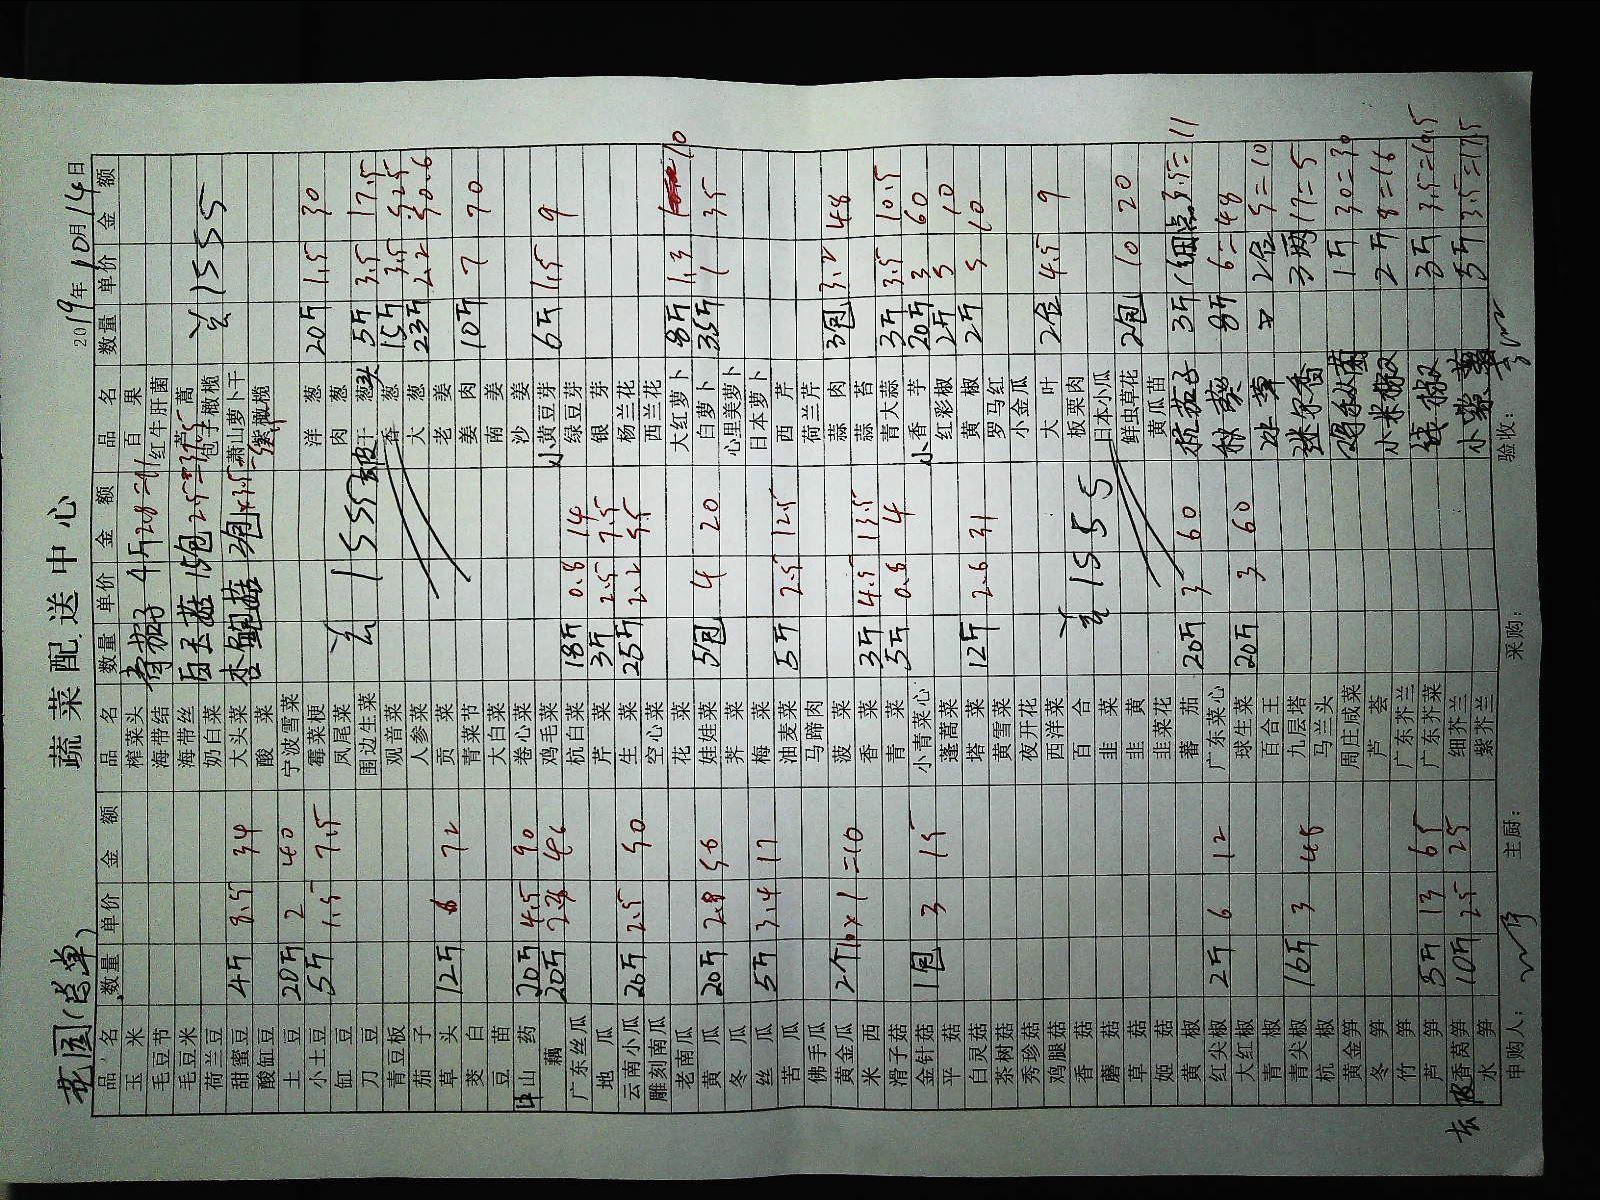 蔬菜配送中心
花园(总单) 2019年10月14日
品名 数量 单价 金额 品名 数量 单价 金额 品名 数量 单价 金额
玉米 榨菜头 百果
毛豆节 海带结 青茄子 4斤 2.8 =11 红牛肝菌
毛豆米 海带丝 蒿
荷兰豆 奶白菜 白玉菇 15包 2.5=37.5 包子橄榄 共1555
甜蜜豆 4斤 8.5 34 大头菜 杏鲍菇 萧山萝卜干
酸缸豆 酸菜 紫橄榄
土豆 20斤 2 40 宁波雪菜
小土豆 5斤 1.5 7.5 霉菜梗 洋葱 20斤 1.5 30
缸豆 凤尾菜 共1555 肉葱
刀豆 围边生菜 干葱头 5斤 3.5 17.5
青豆板 观音菜 香葱 15斤 3.5 52.5
茄子 人参菜 大葱 23斤 2.2 50.6
草头 12斤 6 72 贡菜 老姜
茭白 青菜节 姜肉 10斤 7 70
豆苗 大白菜 南姜
山药 20斤 4.5 90 卷心菜 沙姜
藕 20斤 2.3 46 鸡毛菜 小黄豆芽 6斤 1.5 9
广东丝瓜 杭白菜 18斤 0.8 14 绿豆芽
地瓜 芹菜 3斤 2.5 7.5 银芽
云南小瓜 20斤 2.5 50 生菜 25斤 2.2 55 杨兰花
雕刻南瓜 空心菜 西兰花
老南瓜 花菜 大红萝卜 8斤 1.3 10
黄瓜 20斤 2.8 56 娃娃菜 5包 4 20 白萝卜 35斤 1 35
冬瓜 荠菜 心里美萝卜
丝瓜 5斤 3.4 17 梅菜 日本萝卜
苦瓜 油麦菜 5斤 2.5 12.5 西芹
佛手瓜 马蹄肉 荷兰芹
黄金瓜 2个10×1=10 菠菜 蒜肉 3包 3.2 48
米西 香菜 3斤 4.5 13.5 蒜苔
滑子菇 青菜 5斤 0.8 4 青大蒜 3斤 3.5 10.5
金针菇 1包 3 15 小青菜心 小香芋 20斤 3 60
平菇 蓬蒿菜 红彩椒 2斤 5 10
白灵菇 塔菜 12斤 2.6 31 黄椒 2斤 5 10
茶树菇 黄雪菜 罗马红
秀珍菇 夜开花 小金瓜
鸡腿菇 西洋菜 大叶 2合 4.5 9
香菇 百合 共1555 板栗肉
蘑菇 韭菜 日本小瓜
草菇 韭黄 鲜虫草花 2包 10 20
姬菇 韭菜花 黄瓜苗
黄椒 蕃茄 20斤 3 60 杭茄子 3斤(细点) 3.5=11
红尖椒 2斤 6 12 广东菜心 秋葵 8斤 6=48
大红椒 球生菜 20斤 3 60
青椒 百合王 冰草 2合 5=10
青尖椒 16斤 3 48 九层塔 迷尔香 3两 17=5
杭椒 马兰头
黄金笋 周庄咸菜 1斤 30=30
冬笋 芦荟 小米椒 2斤 8=16
竹笋 广东芥兰
芦笋 5斤 13 65 广东芥菜 线椒 3斤 3.5=10.5
去皮香莴笋 10斤 2.5 25 细芥兰
水笋 紫芥兰 5斤 3.5=17.5
申购人： 主厨： 采购： 验收：